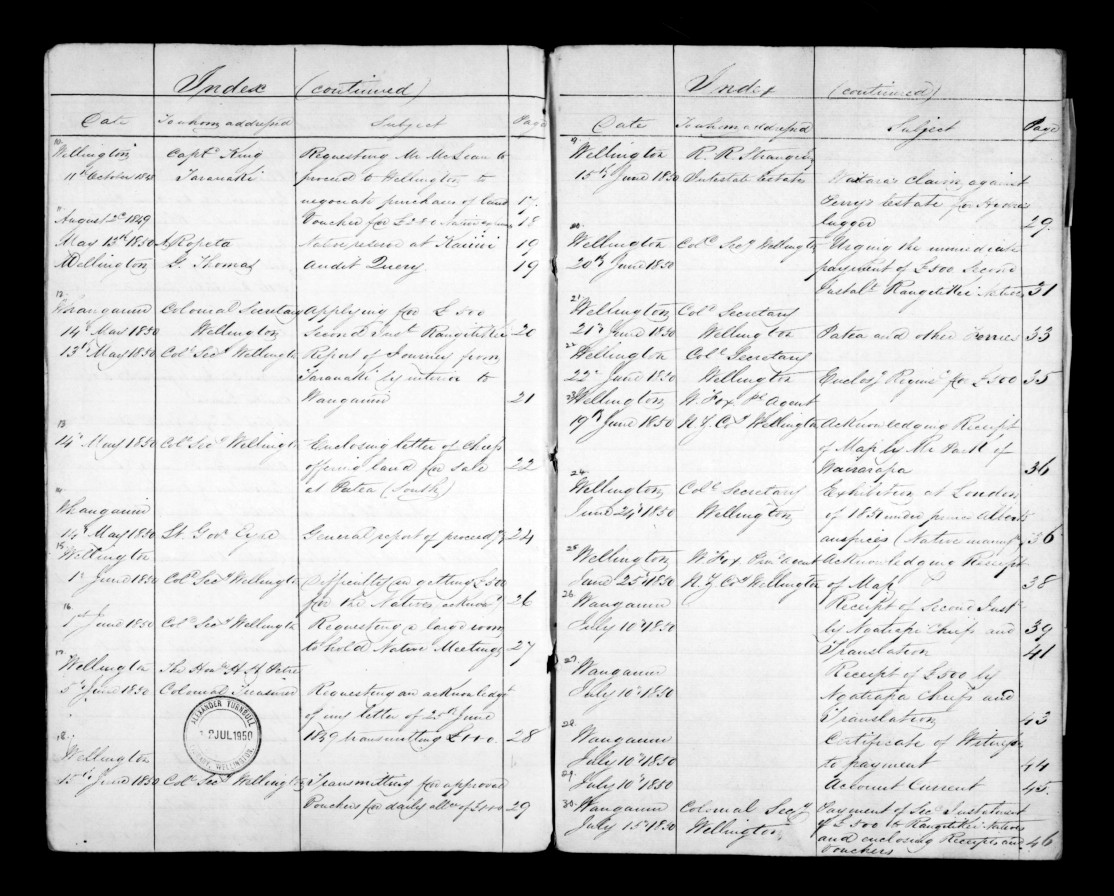 Index (continued)
Date To whom addressed Subject Page
10
Wellington Capt. King Requesting Mr McLean to
11th October 1848 Taranaki proceed to Wellington to
negotiate purchase of land 17
11
August 2d 1849 Voucher for £2 8 0 18
May 13th 1850 Ropeta 19
Wellington G. Thomas Audit Query 19
12
Whanganui Colonial Secretary Applying for £500
14th May 1850 Wellington Second Inst Rangitikei 20
13th May 1850 Col. Secy Wellington Report of Journey from
Taranaki by interior to
Wanganui 21
13
14th May 1850 Col. Secy Wellington Enclosing letter of Chiefs
offering land for sale 22
at Patea (South)
14
Whanganui
14th May 1850 Lt. Govr Eyre General report of proceedgs 24
15
Wellington
1st June 1850 Col. Secy Wellington Difficulty in getting £500
for the Natives 26
16
1st June 1850 Col. Secy Wellington Requesting a large room
to hold Native Meetings 27
17
Wellington The Honble H. W. Petre
5th June 1850 Colonial Treasurer Requesting an acknowledgt
of my letter of 25th June
1849 transmitting 28
ALEXANDER TURNBULL
JUL 1950
LIBRARY, WELLINGTON
18
Wellington
15th June 1850 Col. Secy Wellington Transmitting for approval
Vouchers for daily 29
Index (continued)
Date To whom addressed Subject Page
19
Wellington R. R. Strang Esq
15th June 1850 Intestate Estates claim against
Ferry's Estate for
lugger 29
20
Wellington Coll Secy Wellington Urging the immediate
20th June 1850 payment of £500 Second
Instalt Rangitikei Natives 31
21
Wellington Coll Secretary
21st June 1850 Wellington Patea and other Ferries 33
22
Wellington Coll Secretary
22d June 1850 Wellington Enclosg Requisn for £500 35
23
Wellington W. Fox Pl Agent
19th June 1850 N.Z. Coy Wellington Acknowledging Receipt
of Map by Mr Park of
Wairarapa 36
24
Wellington Coll Secretary Exhibition at London
June 24th 1850 Wellington of 1851 under prince Alberts
auspices (Native manuf) 36
25
Wellington W. Fox Prinl Agent Acknowledging Receipt
June 25th 1850 N.Z. Coy Wellington of Map 38
26
Wanganui Receipt of Second Inst
July 10th 1850 by Ngatiapa Chiefs and 39
Translation 41
27
Wanganui Receipt of £500 by
July 10th 1850 Ngatiapa Chiefs and
Translation 43
28
Wanganui Certificate of Witnesses
July 10th 1850 to payment 44
29
July 10th 1850 Account Current 45
30
Wanganui Colonial Secy Payment of Sec Instalment
July 15th 1850 Wellington of £500 to Rangitikei Natives
and enclosing Receipts and 46
Vouchers